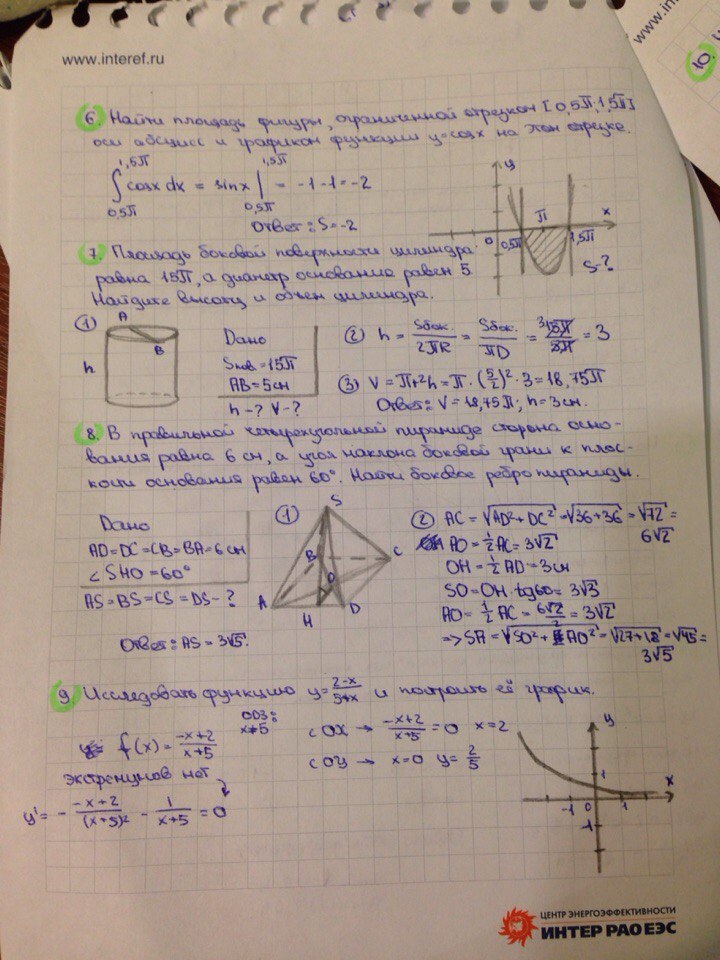 www.interef.ru
www.in
10.
6. Найти площадь фигуры, ограниченной отрезком [0,5π, 1,5π]
оси абсцисс и графиком функции y=cosx на этом отрезке.
1,5π 1,5π
∫ cosx dx = sinx | = -1-1=-2
0,5π 0,5π
Ответ: S=-2
y
π x
0 0,5π 1,5π
S-?
7. Площадь боковой поверхности цилиндра
равна 15π, а диаметр основание равен 5.
Найдите высоту и объем цилиндра.
① A
B
h
Дано
Sпов = 15π
AB = 5см
h-? V-?
② h = Sбок./2πR = Sбок./πD = 15π/5π = 3
③ V = πr²h = π·(5/2)²·3 = 18,75π
Ответ: V=18,75π, h=3см.
8. В правильной четырехугольной пирамиде сторона осно-
вания равна 6 см, а угол наклона боковой грани к плос-
кости основания равен 60°. Найти боковое ребро пирамиды.
Дано
AD=DC=CB=BA=6см
∠SHO=60°
AS=BS=CS=DS-?
Ответ: AS=3√5.
① S
B C
O
A H D
② AC = √AD²+DC² = √36+36 = √72 =
6√2
AO = ½AC = 3√2
OH = ½AD = 3см
SO = OH·tg60 = 3√3
AO = ½AC = 6√2/2 = 3√2
=> SA = √SO²+AO² = √27+18 = √45 =
3√5
9. Исследовать функцию y=2-x/5+x и построить её график.
ОДЗ:
x≠5
f(x) = -x+2/x+5
экстремумов нет
y' = - -x+2/(x+5)² - 1/x+5 = 0
с OX → -x+2/x+5 = 0 x=2
с OY → x=0 y=2/5
y
1 x
-1 0 1
-1
ЦЕНТР ЭНЕРГОЭФФЕКТИВНОСТИ
ИНТЕР РАО ЕЭС